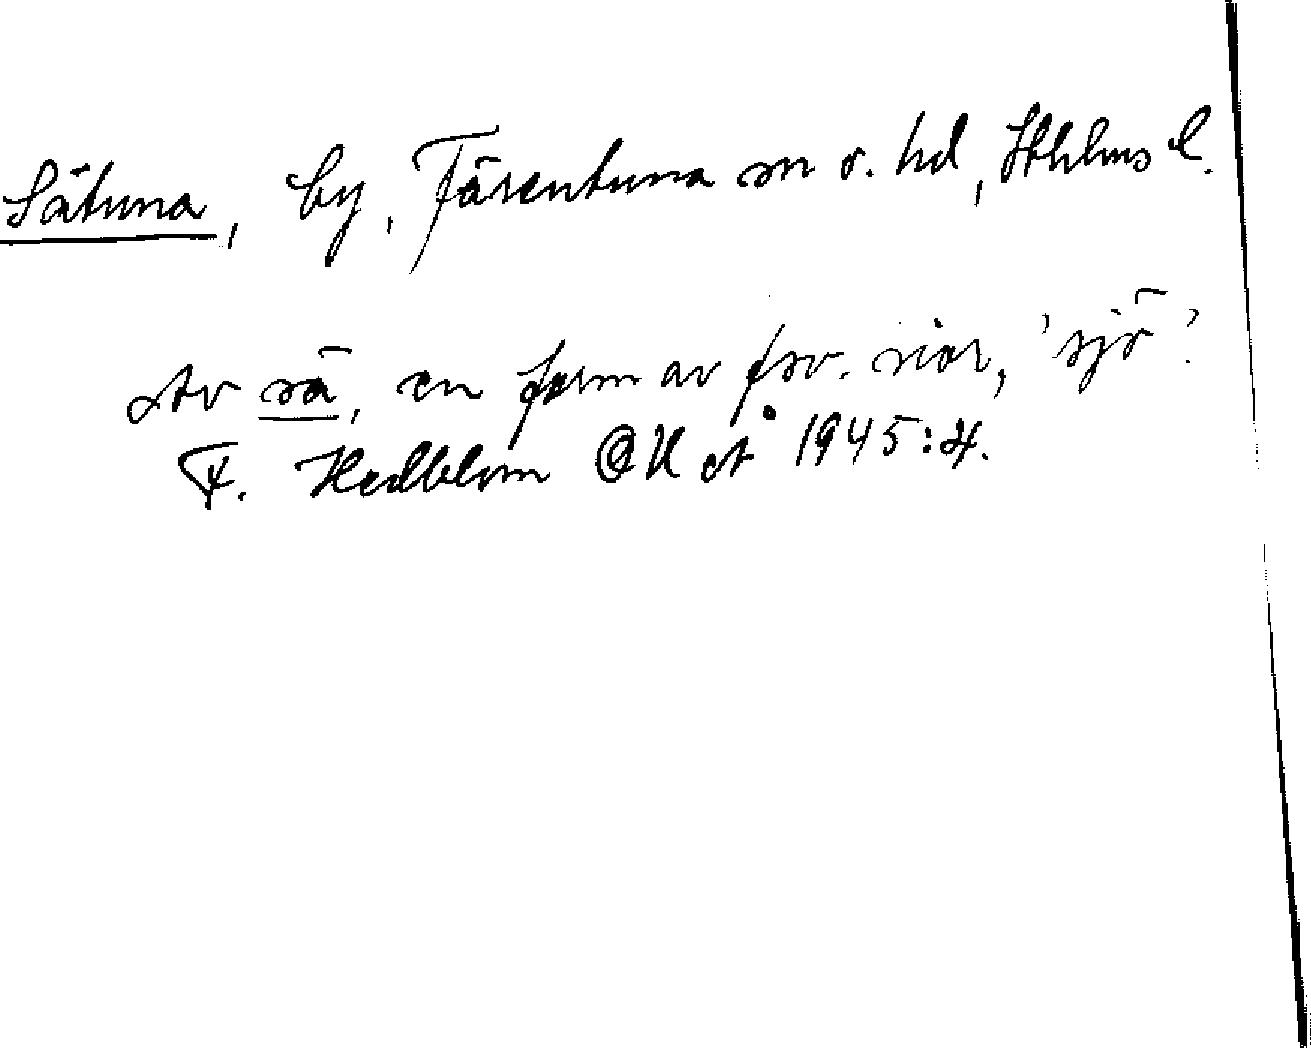 Sätuna, by, Färentuna sn o. hd, Sthlms l.
Av sä, en form av fsv. siær, 'sjö'.
F. Hedblom OUÅ 1945:4.